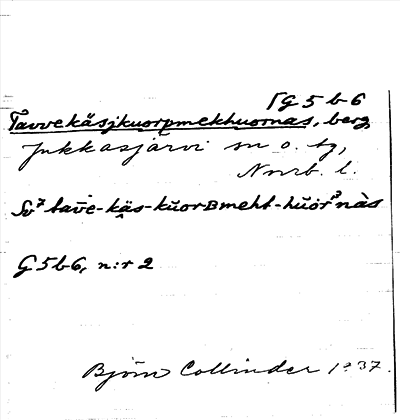 G 5 b 6
Tavvekäsjkuorpmekhuornas, berg,
Jukkasjärvi sn o. tg,
Nnrb. l.
tav̄e-käs-kŭorʙmeht-hŭor̆nàs
G 5 b 6, n:r 2
Björn Collinder 1937.